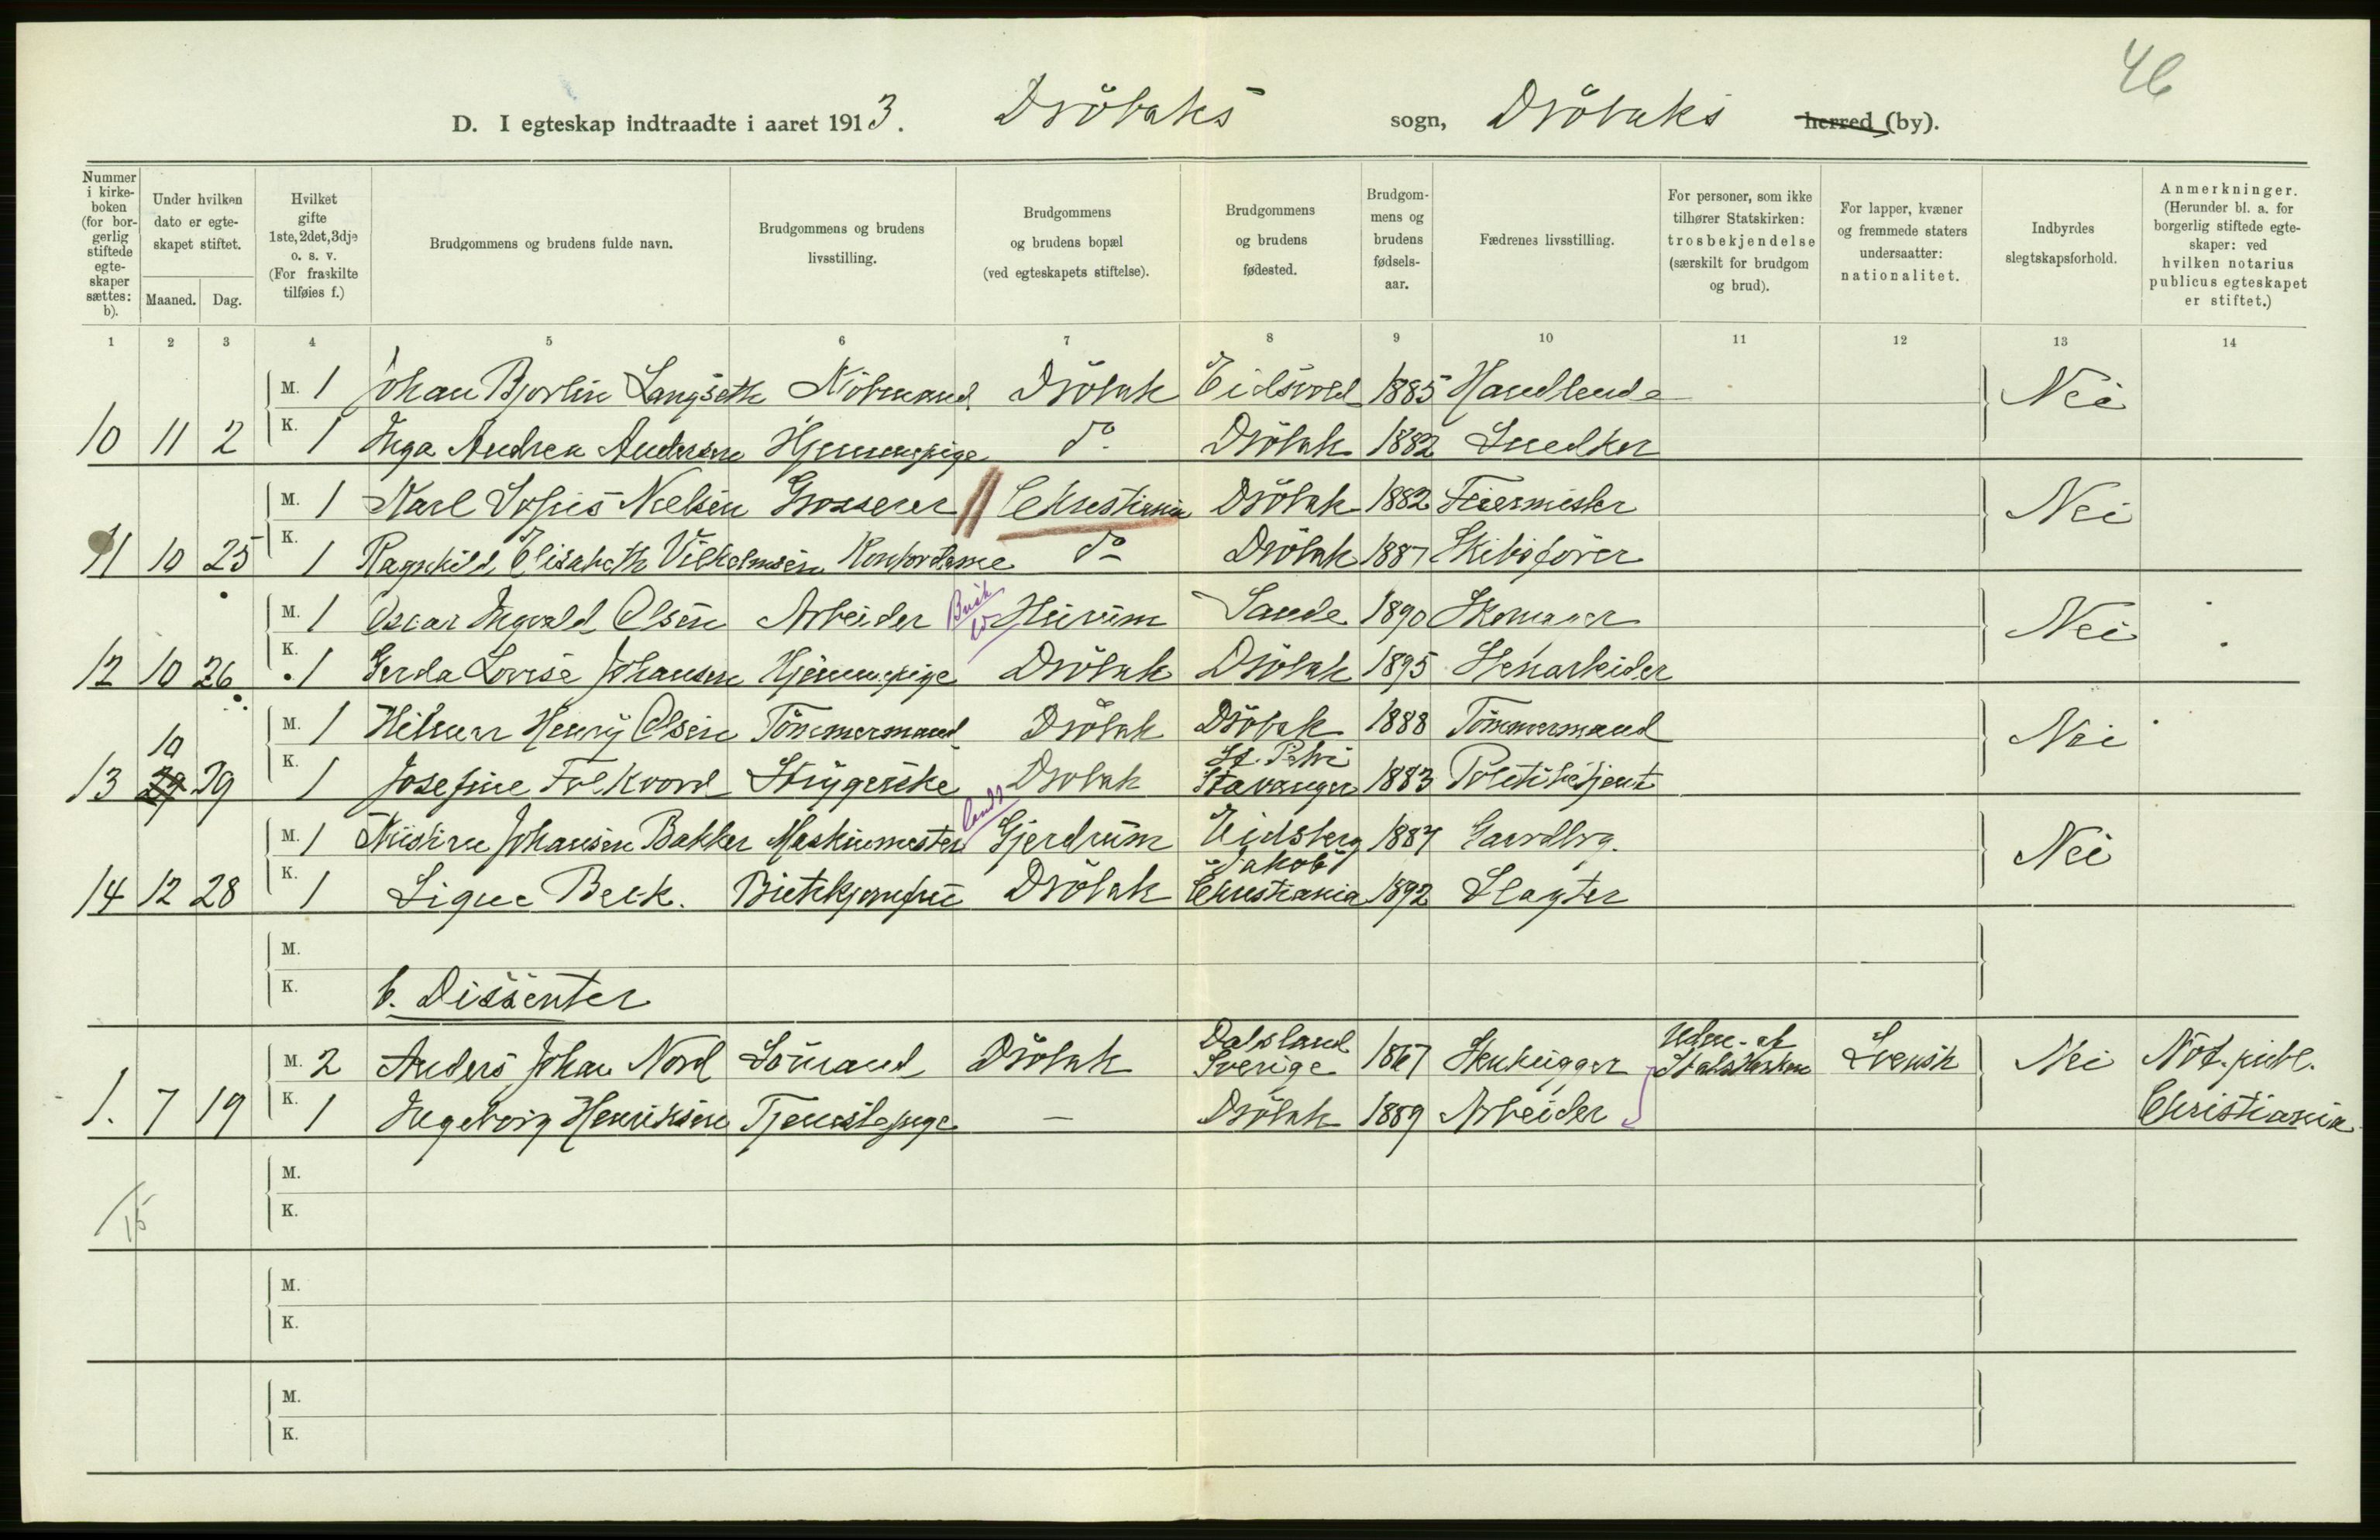 46
D. I egteskap indtraadte i aaret 1913. Dröbaks sogn, Dröbaks herred (by).
Nummer i kirkeboken (for borgerlig stiftede egteskaper sættes: b).
Under hvilken dato er egteskapet stiftet.
Maaned. Dag.
Hvilket gifte 1ste, 2det, 3dje o. s. v. (For fraskilte tilføies f.)
Brudgommens og brudens fulde navn.
Brudgommens og brudens livsstilling.
Brudgommens og brudens bopæl (ved egteskapets stiftelse).
Brudgommens og brudens fødested.
Brudgommens og brudens fødselsaar.
Fædrenes livsstilling.
For personer, som ikke tilhører Statskirken: trosbekjendelse (særskilt for brudgom og brud).
For lapper, kvæner og fremmede staters undersaatter: nationalitet.
Indbyrdes slegtskapsforhold.
Anmerkninger. (Herunder bl. a. for borgerlig stiftede egteskaper: ved hvilken notarius publicus egteskapet er stiftet.)
1 2 3 4 5 6 7 8 9 10 11 12 13 14
M. 1 Johan Bjorlin Langseth Kjöbmand Dröbak Eidsvold 1885 Handlende Nei
10 11 2 K. 1 Inga Andrea Andersen Hjemmepige do Dröbak 1882 Snedker
M. 1 Karl Sofus Nielsen Grosserer Christiania Dröbak 1882 Feiermester Nei
11 10 25 K. 1 Ragnhild Elisabeth Vilhelmsen Kontordame do Dröbak 1887 Skibsförer
M. 1 Oscar Ingvald Olsen Arbeider Busk Hurum Sande 1890 Skomager Nei
12 10 26 K. 1 Gerda Lovise Johansen Hjemmepige Dröbak Dröbak 1895 Stenarbeider
M. 1 Hilmar Henry Olsen Tömmermand Dröbak Dröbak 1888 Tömmermand Nei
10
13 29 K. 1 Josefine Folkvord Strygerske Drobak St. Petri Stavanger 1883 Politibetjent
M. 1 Johansen Bakker Maskinmester Gjerdrum Eidsberg 1887 Gaardbrg. Nei
14 12 28 K. 1 Signe Beck. Dröbak Jakob Christiania 1892 Slagter
M.
K. b. Dissenter
M. 2 Anders Johan Nord Sömand Dröbak Dalsland Sverige 1867 Stenhugger Uden. af Statskirken Svensk Nei Not. publ.
1. 7 19 K. 1 Ingeborg Henriksen Tjenestepige — Dröbak 1889 Arbeider Christiania
M.
15
K.
M.
K.
M.
K.